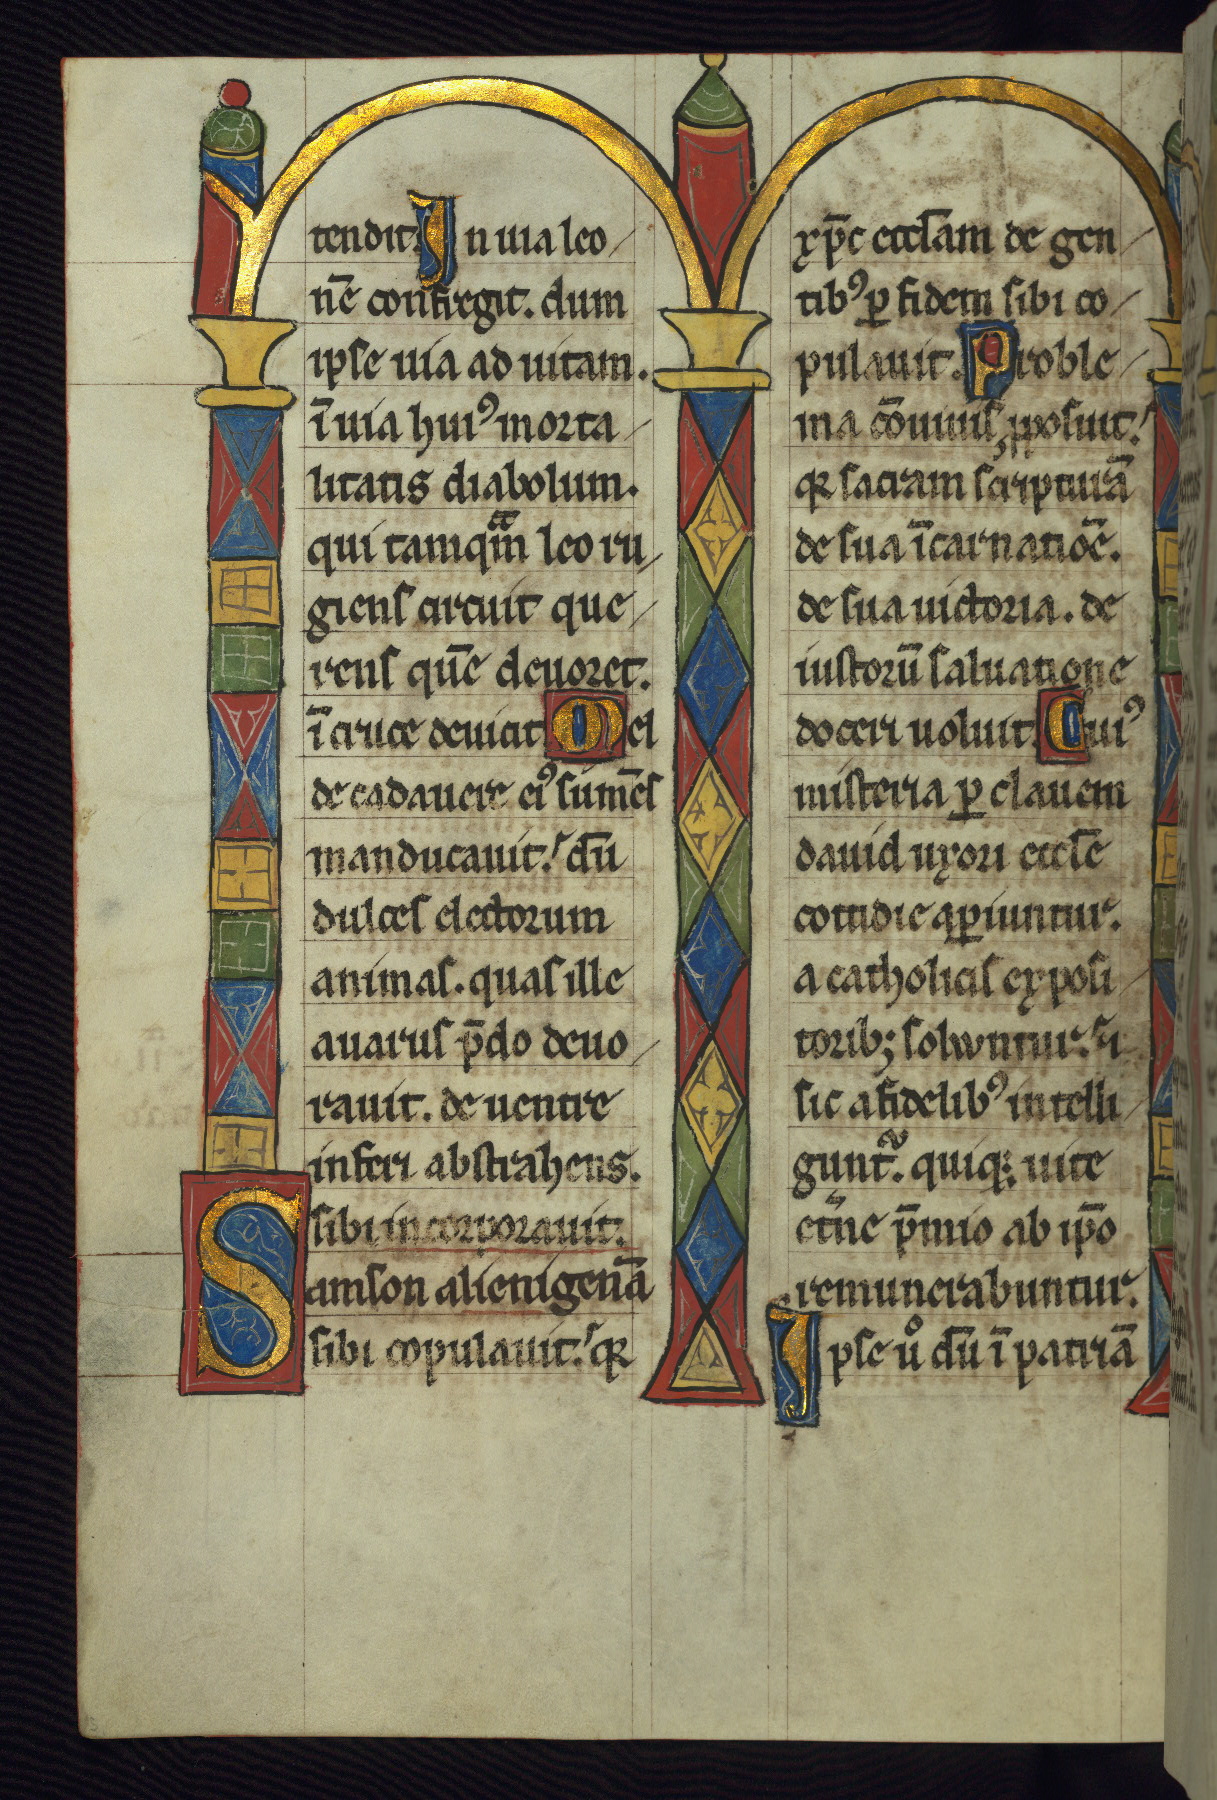 tendit. In uia leo
nē confregit. dum
ipse uia ad uitam.
ī uia huiꝰ morta
litatis diabolum.
qui tamqͣm leo ru
giens circuit que
rens quē deuoret.
ī cruce deuicit. Mel
de cadauere eiꝰ sumēs
manducauit. dū
dulces electorum
animas. quas ille
auarus p̄do deuo
rauit. de uentre
inferi abstrahens.
sibi incorporauit.
Samson alienigenā
sibi copulauit. qꝛ
xp̄c eccl̄am de gen
tibꝰ ꝑ fidem sibi co
pulauit. Proble
ma cōuiuis ꝓposuit.
qꝛ sacram scripturā
de sua īcarnatiōe.
de sua uictoria. de
iustorū saluatione
doceri uoluit. Cuiꝰ
misteria ꝑ clauem
dauid uxori eccl̄e
cottidie aꝑiuntur.
a catholicis exposi
torib; soluuntur.
sic a fidelibꝰ intelli
gunt᷑. quiq; uite
et̄ne p̄mio ab ip̄o
remunerabuntur.
Ipse uͦ dū ī patriā